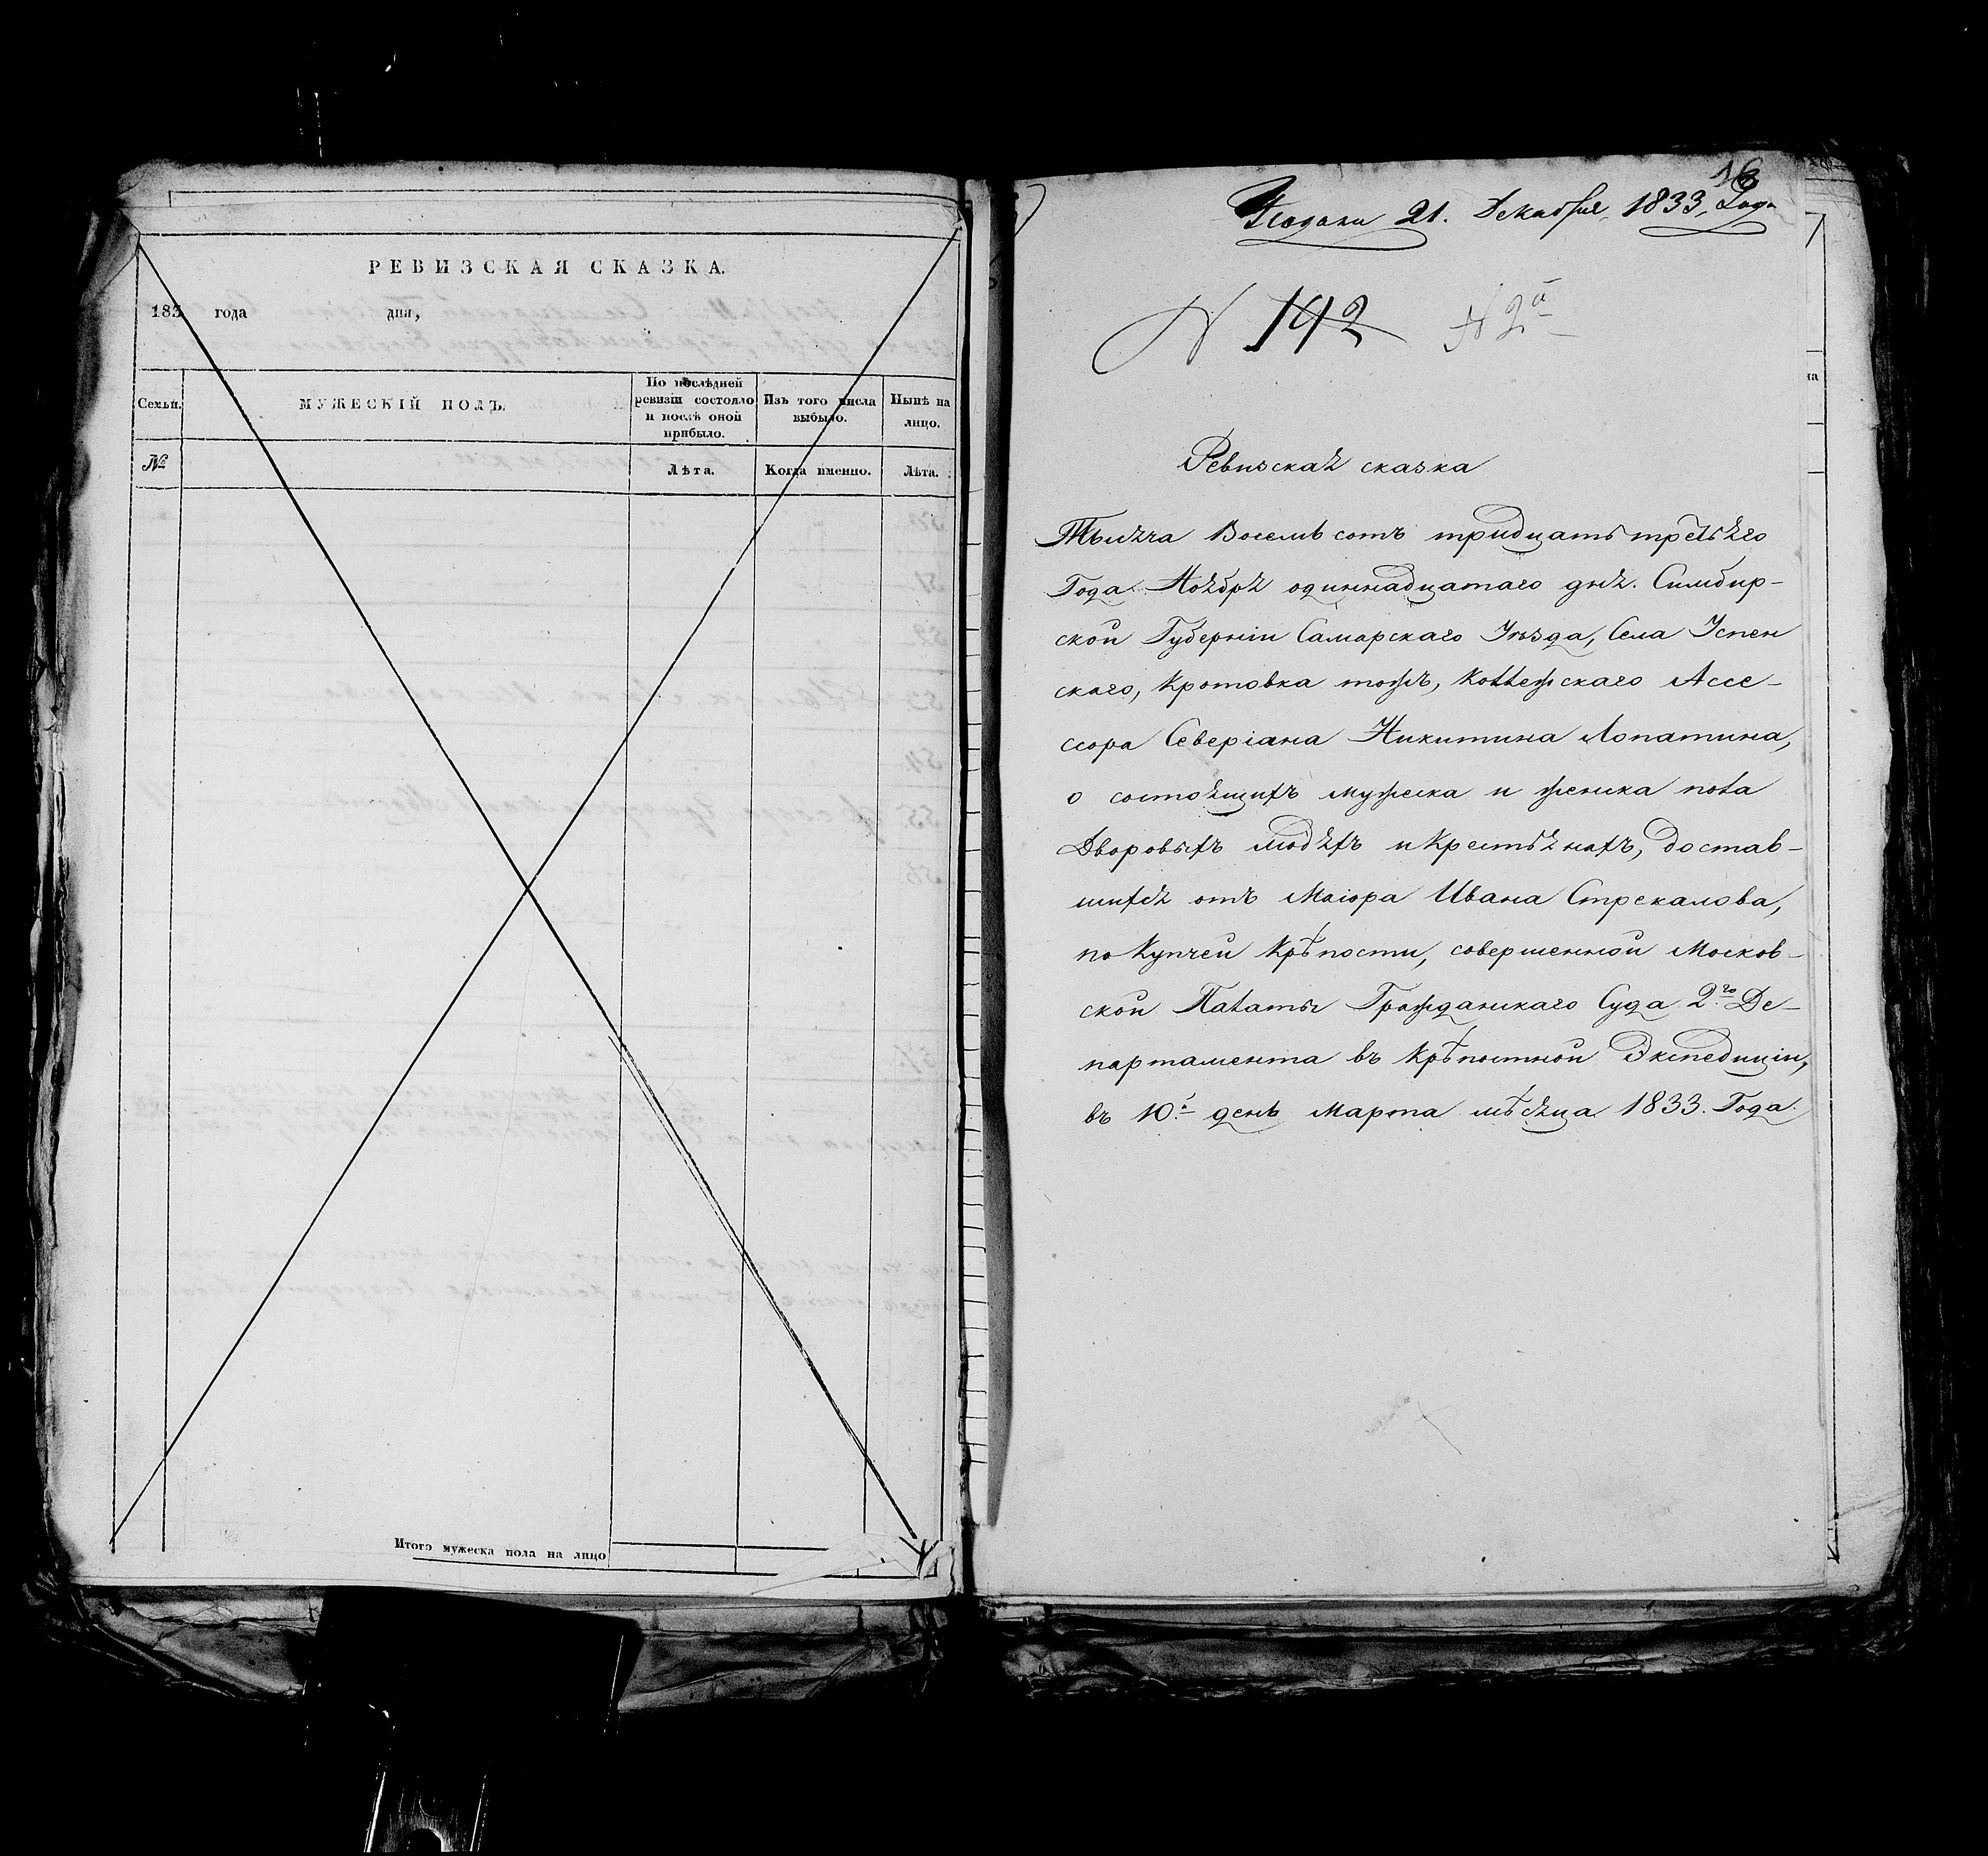 РЕВИЗСКАЯ СКАЗКА.
183 года дня,
Семьи.
МУЖЕСКІЙ ПОЛЪ.
По послѣдней
ревизіи состояло
и послѣ оной
прибыло.
Изъ того числа
выбыло.
Нынѣ на
лицо.
№
Лѣта.
Когда именно.
Лѣта.
Итого мужеска пола на лицо
16
21. Декабря 1833, Года
N 142 N 2й
Ревизская сказка
Тысяча Восемь сотъ тридцать третьяго
Года Ноября одиннадцатаго дня. Симбир-
ской Губерніи Самарскаго Уѣзда, Села Успен
скаго, Кротовка тожъ, Коллежскаго Ассе-
ссора Северіана Никитина Лопатина,
о состоящихъ мужеска и женска пола
Дворовыхъ людяхъ и Крестьянахъ, достав-
шихся отъ Маіора Ивана Стрекалова,
по Купчей Крѣпости, совершенной Москов-
ской Палаты Гражданскаго Суда 2го Де-
партамента въ Крѣпостной Экспедиціи,
въ 10й день Марта мѣсяца 1833. Года.